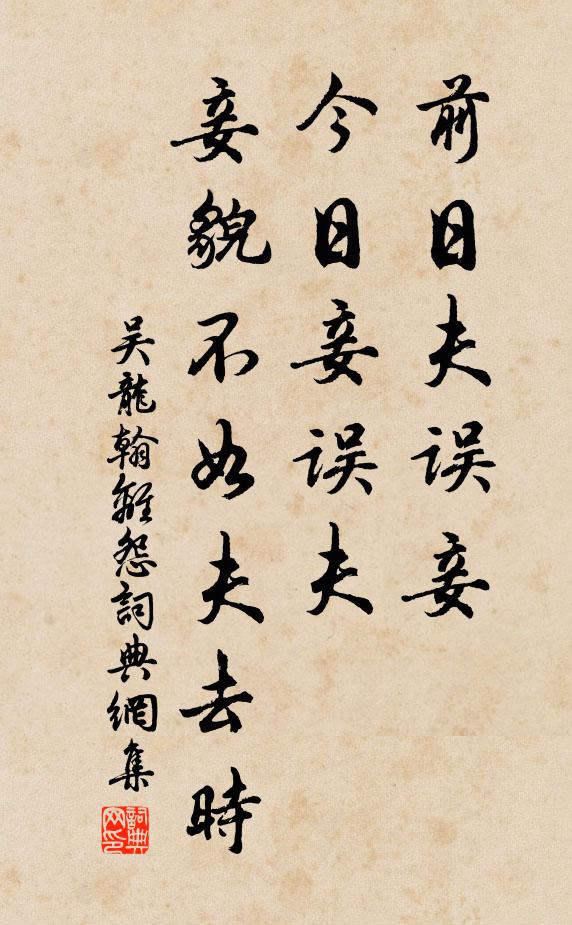 前日夫误妾
今日妾误夫
妾貌不如夫去时
吴龍翰離怨詞典網集
詞典网印